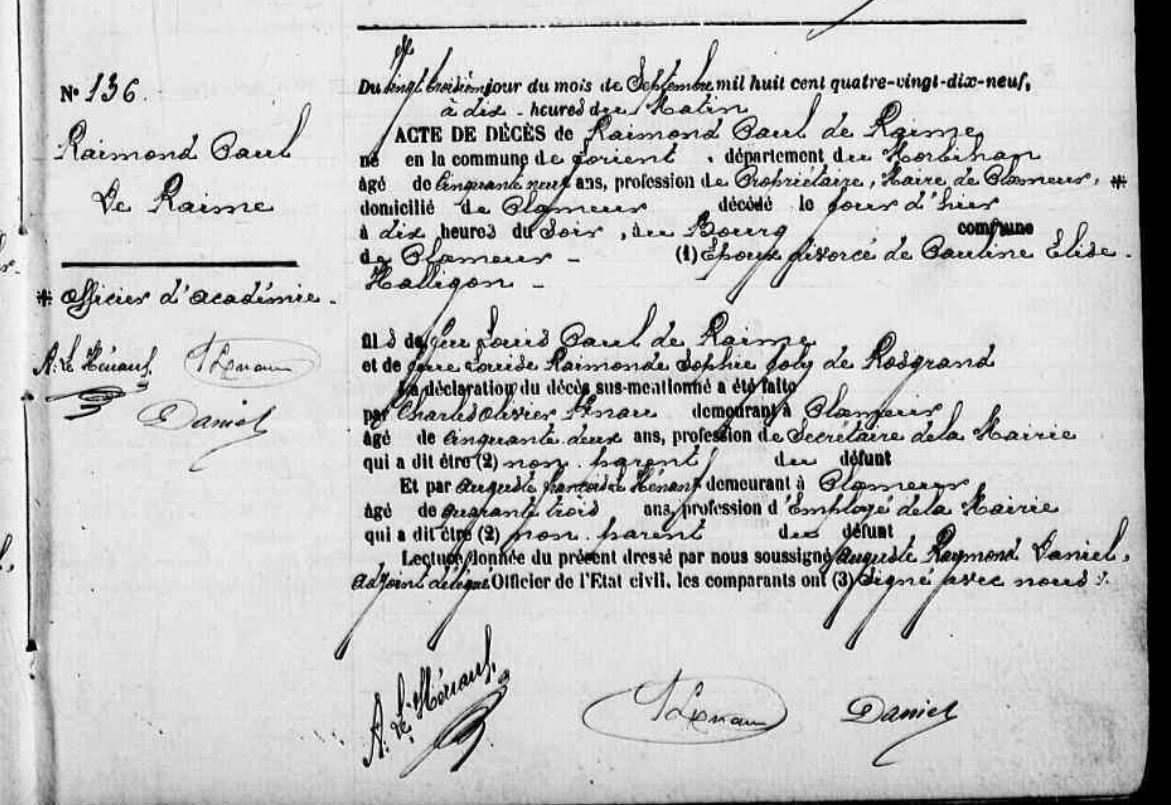 N° 136.
Raimond Paul
De Raime
* Officier d'académie.
Daniel
Du vingt troisième jour du mois de Septembre mil huit cent quatre-vingt-dix-neuf,
à dix heures du Matin
ACTE DE DÉCÈS de Raimond Paul de Raime
né en la commune de Lorient, département du Morbihan
âgé de Cinquante neuf ans, profession de Propriétaire, Maire de Plœmeur, *
domicilié de Plœmeur décédé le jour d'hier
à dix heures du Soir, au Bourg commune
de Plœmeur - (1) Époux divorcé de Pauline Elise
Halligon -
fils de feu Louis Paul de Raime
et de feue Louise Raimonde Sophie Joly de Rosgrand
La déclaration du décès sus-mentionné a été faite
par Charles Olivier demeurant à Plœmeur
âgé de Cinquante deux ans, profession de Secrétaire de la Mairie
qui a dit être (2) non parent du défunt
Et par Auguste François Le Hénanf demeurant à Plœmeur
âgé de quarante trois ans, profession d'Employé de la Mairie
qui a dit être (2) non parent du défunt
Lecture donnée du présent dressé par nous soussigné Auguste Raymond Daniel,
adjoint délégué Officier de l'Etat civil, les comparants ont (3) Signé avec nous.
Daniel